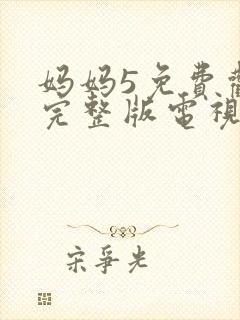 妈妈5免費
完整版電視
宋爭光